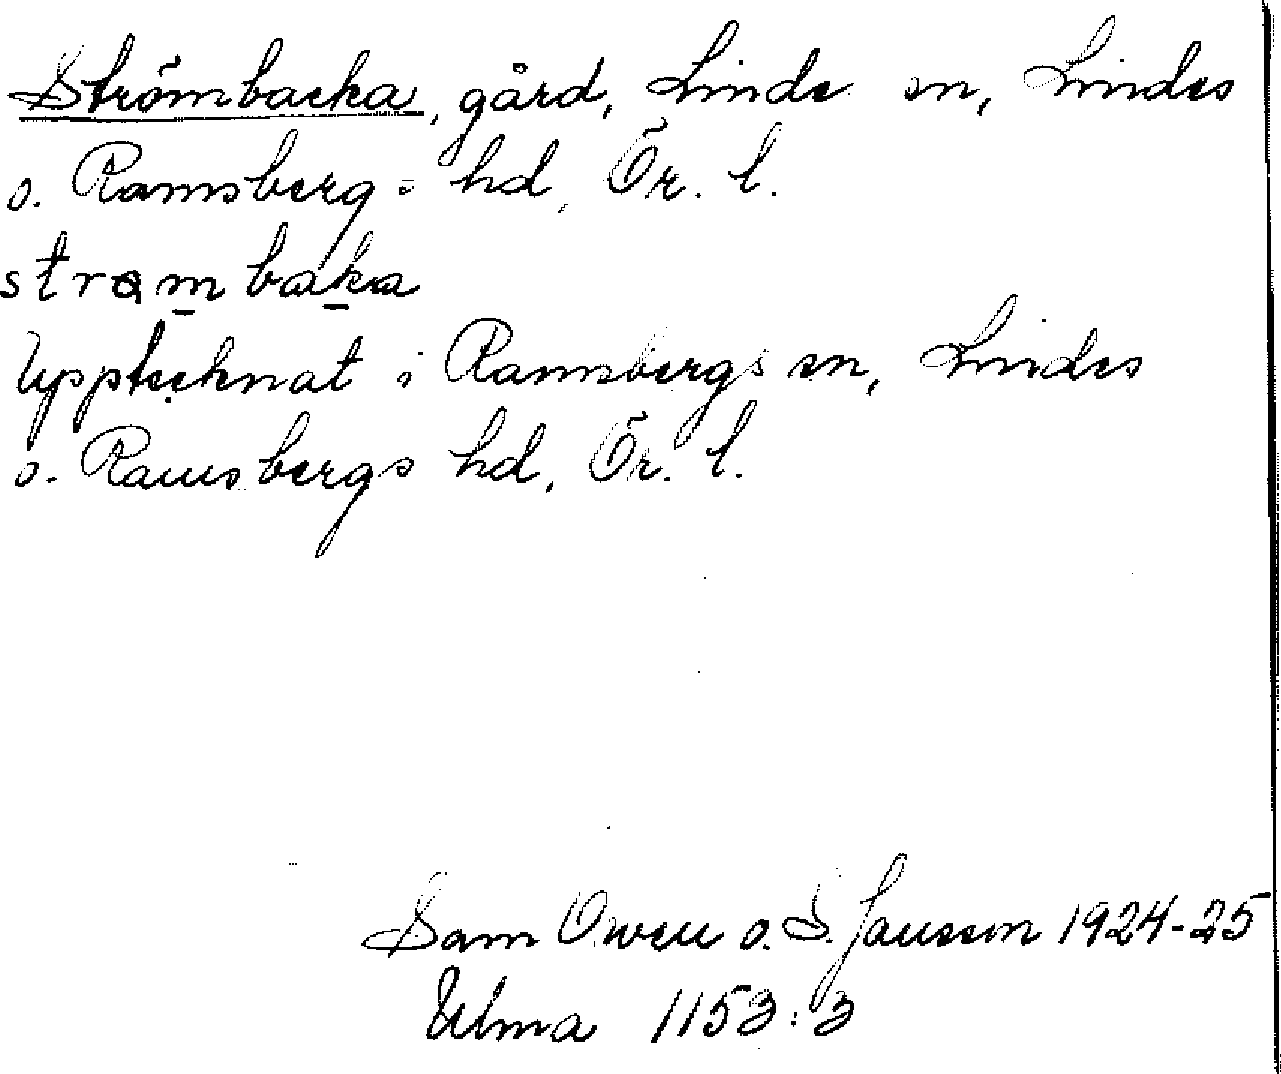 Strömbacka, gård, Linde sn, Lindes
o. Ramsberg = hd, Ör. l.
strɑm̲bak̲a
Upptecknat i Ramsbergs sn, Lindes
o. Ramsbergs hd, Ör. l.
Sam Owen o. S. Jansson 1924-25
Ulma 1153:3